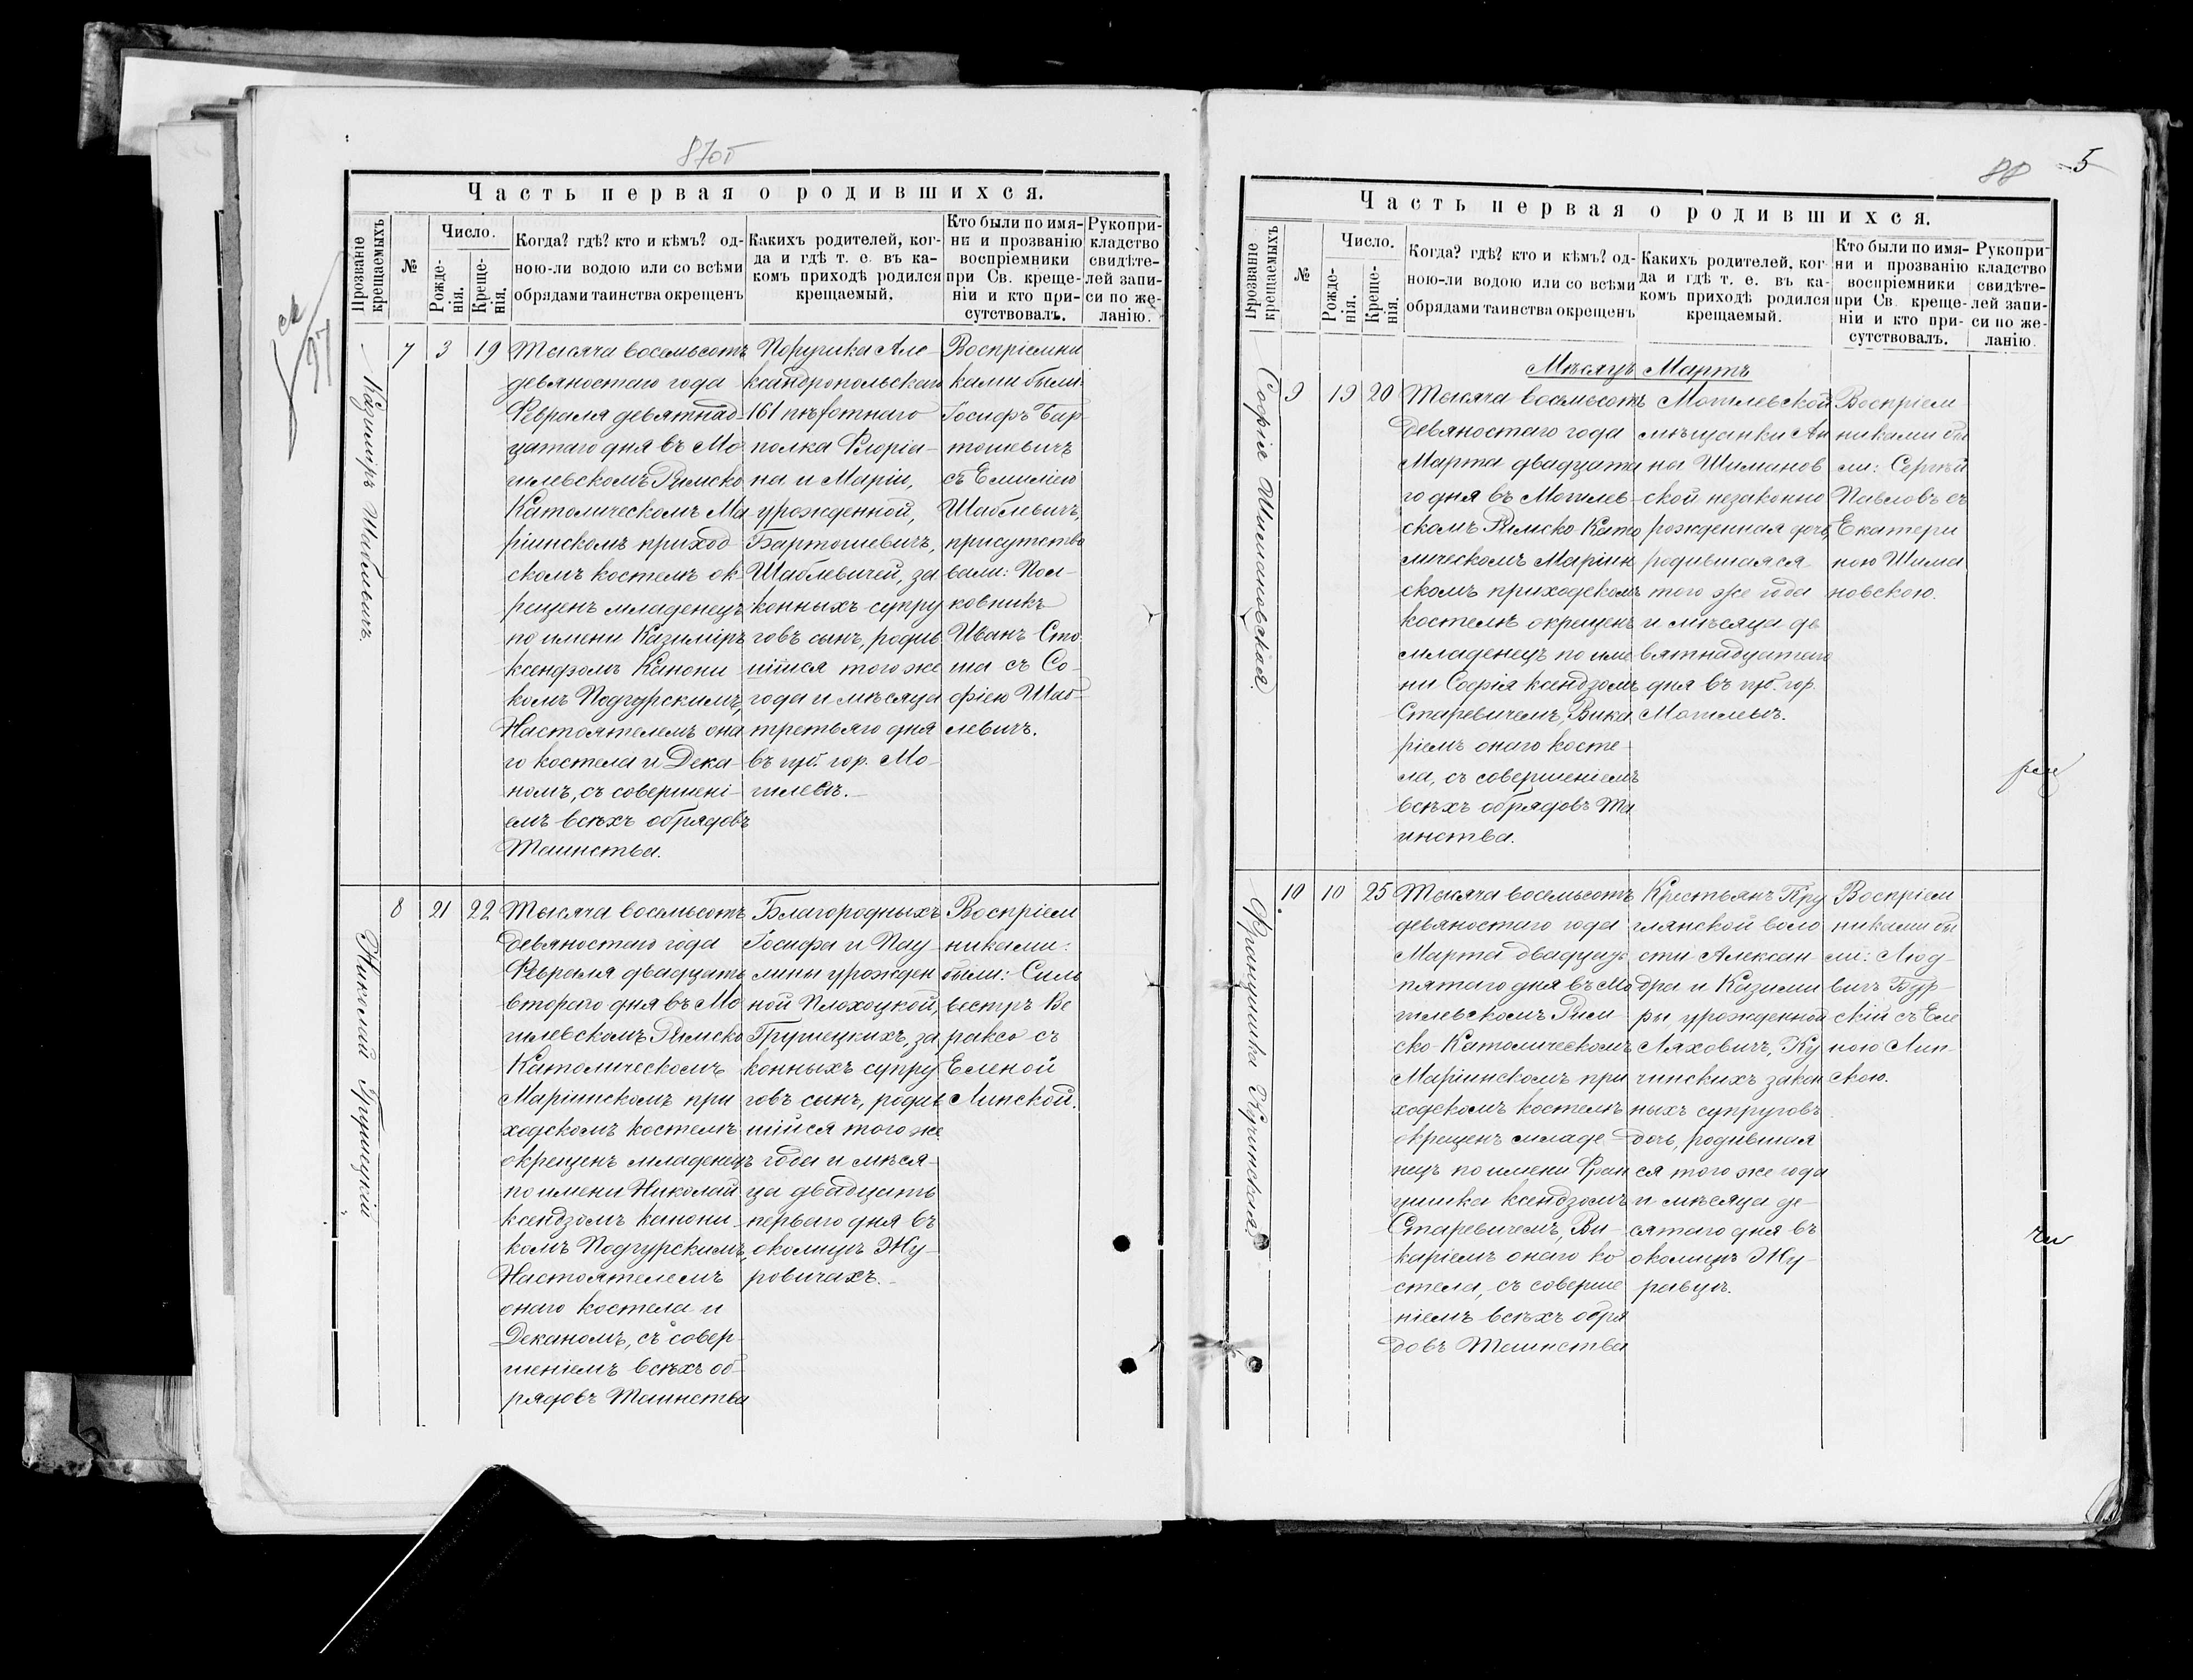 87об
Часть первая о родившихся.
Прозваніе крещаемыхъ
№
Число.
Рожде-
нія.
Креще-
нія.
Когда? гдѣ? кто и кѣмъ? од-
ною-ли водою или со всѣми
обрядами таинства окрещенъ
Какихъ родителей, ког-
да и гдѣ т. е. въ ка-
комъ приходѣ родился
крещаемый.
Кто были по имя-
ни и прозванію
воспріемники
при Св. креще-
ніи и кто при-
сутствовалъ.
Рукопри-
кладство
свидѣте-
лей запи-
си по же-
ланію.
Казиміръ Шаблевичъ.
7
3
19
Тысяча восемьсотъ
девяностаго года
Февраля девятнад-
цатаго дня въ Мо
гилевскомъ Римско
Католическомъ Ма
ріинскомъ приход-
скомъ костелѣ ок-
рещенъ младенецъ
по имени Казиміръ
ксендзомъ Канони
комъ Подгурскимъ,
Настоятелемъ она
го костела и Дека-
номъ, съ совершені-
емъ всѣхъ обрядовъ
Таинства.
Поручика Але-
ксандропольскаго
161 пѣхотнаго
полка Флоріа-
на и Маріи,
урожденной,
Бартошевичъ,
Шаблевичей, за
конныхъ супру
говъ сынъ, родив
шійся того же
года и мѣсяца
третьяго дня
въ губ. гор. Мо-
гилевѣ.
Воспріемни
ками были:
Іосифъ Бар
тошевичъ
съ Емиліею
Шаблевичъ,
присутство
вали: Пол-
ковникъ
Иванъ Сто
ша съ Со-
фіею Шаб-
левичъ.
Николай Грушецкій
8
21
22
Тысяча восемьсотъ
девяностаго года
Февраля двадцать
второго дня въ Мо
гилевскомъ Римско
Католическомъ
Маріинскомъ при
ходскомъ костелѣ
окрещенъ младенецъ
по имени Николай
ксендзомъ канони
комъ Подгурскимъ,
Настоятелемъ
онаго костела и
Деканомъ, съ совер-
шеніемъ всѣхъ об-
рядовъ Таинства
Благородныхъ
Іосифа и Пау-
лины урожден
ной Плохоцкой,
Грушецкихъ, за
конныхъ супру
говъ сынъ, родив
шійся того же
года и мѣся-
ца двадцать
перваго дня въ
околицѣ Жу-
ровичахъ.
Воспріем
никами:
были: Силь
вестръ Ке
раксо съ
Еленой
Липской.
88 5
Часть первая о родившихся.
Прозваніе крещаемыхъ
№
Число.
Рожде-
нія.
Креще-
нія.
Когда? гдѣ? кто и кѣмъ? од-
ною-ли водою или со всѣми
обрядами таинства окрещенъ
Какихъ родителей, ког-
да и гдѣ т. е. въ ка-
комъ приходѣ родился
крещаемый.
Кто были по имя-
ни и прозванію
воспріемники
при Св. креще-
ніи и кто при-
сутствовалъ.
Рукопри-
кладство
свидѣте-
лей запи-
си по же-
ланію.
Мѣсяцъ Мартъ
Софія Шимановская.
9
19
20
Тысяча восемьсотъ
девяностаго года
Марта двадцата
го дня въ Могилев-
скомъ Римско Като
лическомъ Маріин
скомъ приходскомъ
костелѣ окрещенъ
младенецъ по име
ни Софія ксендзомъ
Старевичемъ, Вика
ріемъ онаго косте-
ла, съ совершеніемъ
всѣхъ обрядовъ Та
инства.
Могилевской
мѣщанки Ан
ны Шиманов
ской незаконно
рожденная дочь,
родившаяся
того же года
и мѣсяца де
вятнадцатаго
дня въ губ. гор.
Могилевѣ.
Воспріем
никами бы
ли: Сергѣй
Павловъ съ
Екатери
ною Шима
новскою.
Францишка Кучинская
10
10
25
Тысяча восемьсотъ
девяностаго года
Марта двадцать
пятаго дня въ Мо
гилевскомъ Рим-
ско-Католическомъ
Маріинскомъ при
ходскомъ костелѣ
окрещенъ младе-
нецъ по имени Фран
цишка ксендзомъ
Старевичемъ, Ви-
каріемъ онаго ко
стела, съ соверше
ніемъ всѣхъ обря
довъ Таинства
Крестьянъ Кру
глянской воло
сти Алексан-
дра и Казими
ры, урожденной
Ляховичъ, Ку
чинскихъ закон
ныхъ супруговъ
дочь, родившая
ся того же года
и мѣсяца де-
сятаго дня въ
околицѣ Жу-
равцѣ.
Воспріем
никами бы
ли: Люд-
вигъ Бур-
скій съ Еле
ною Лип-
скою.